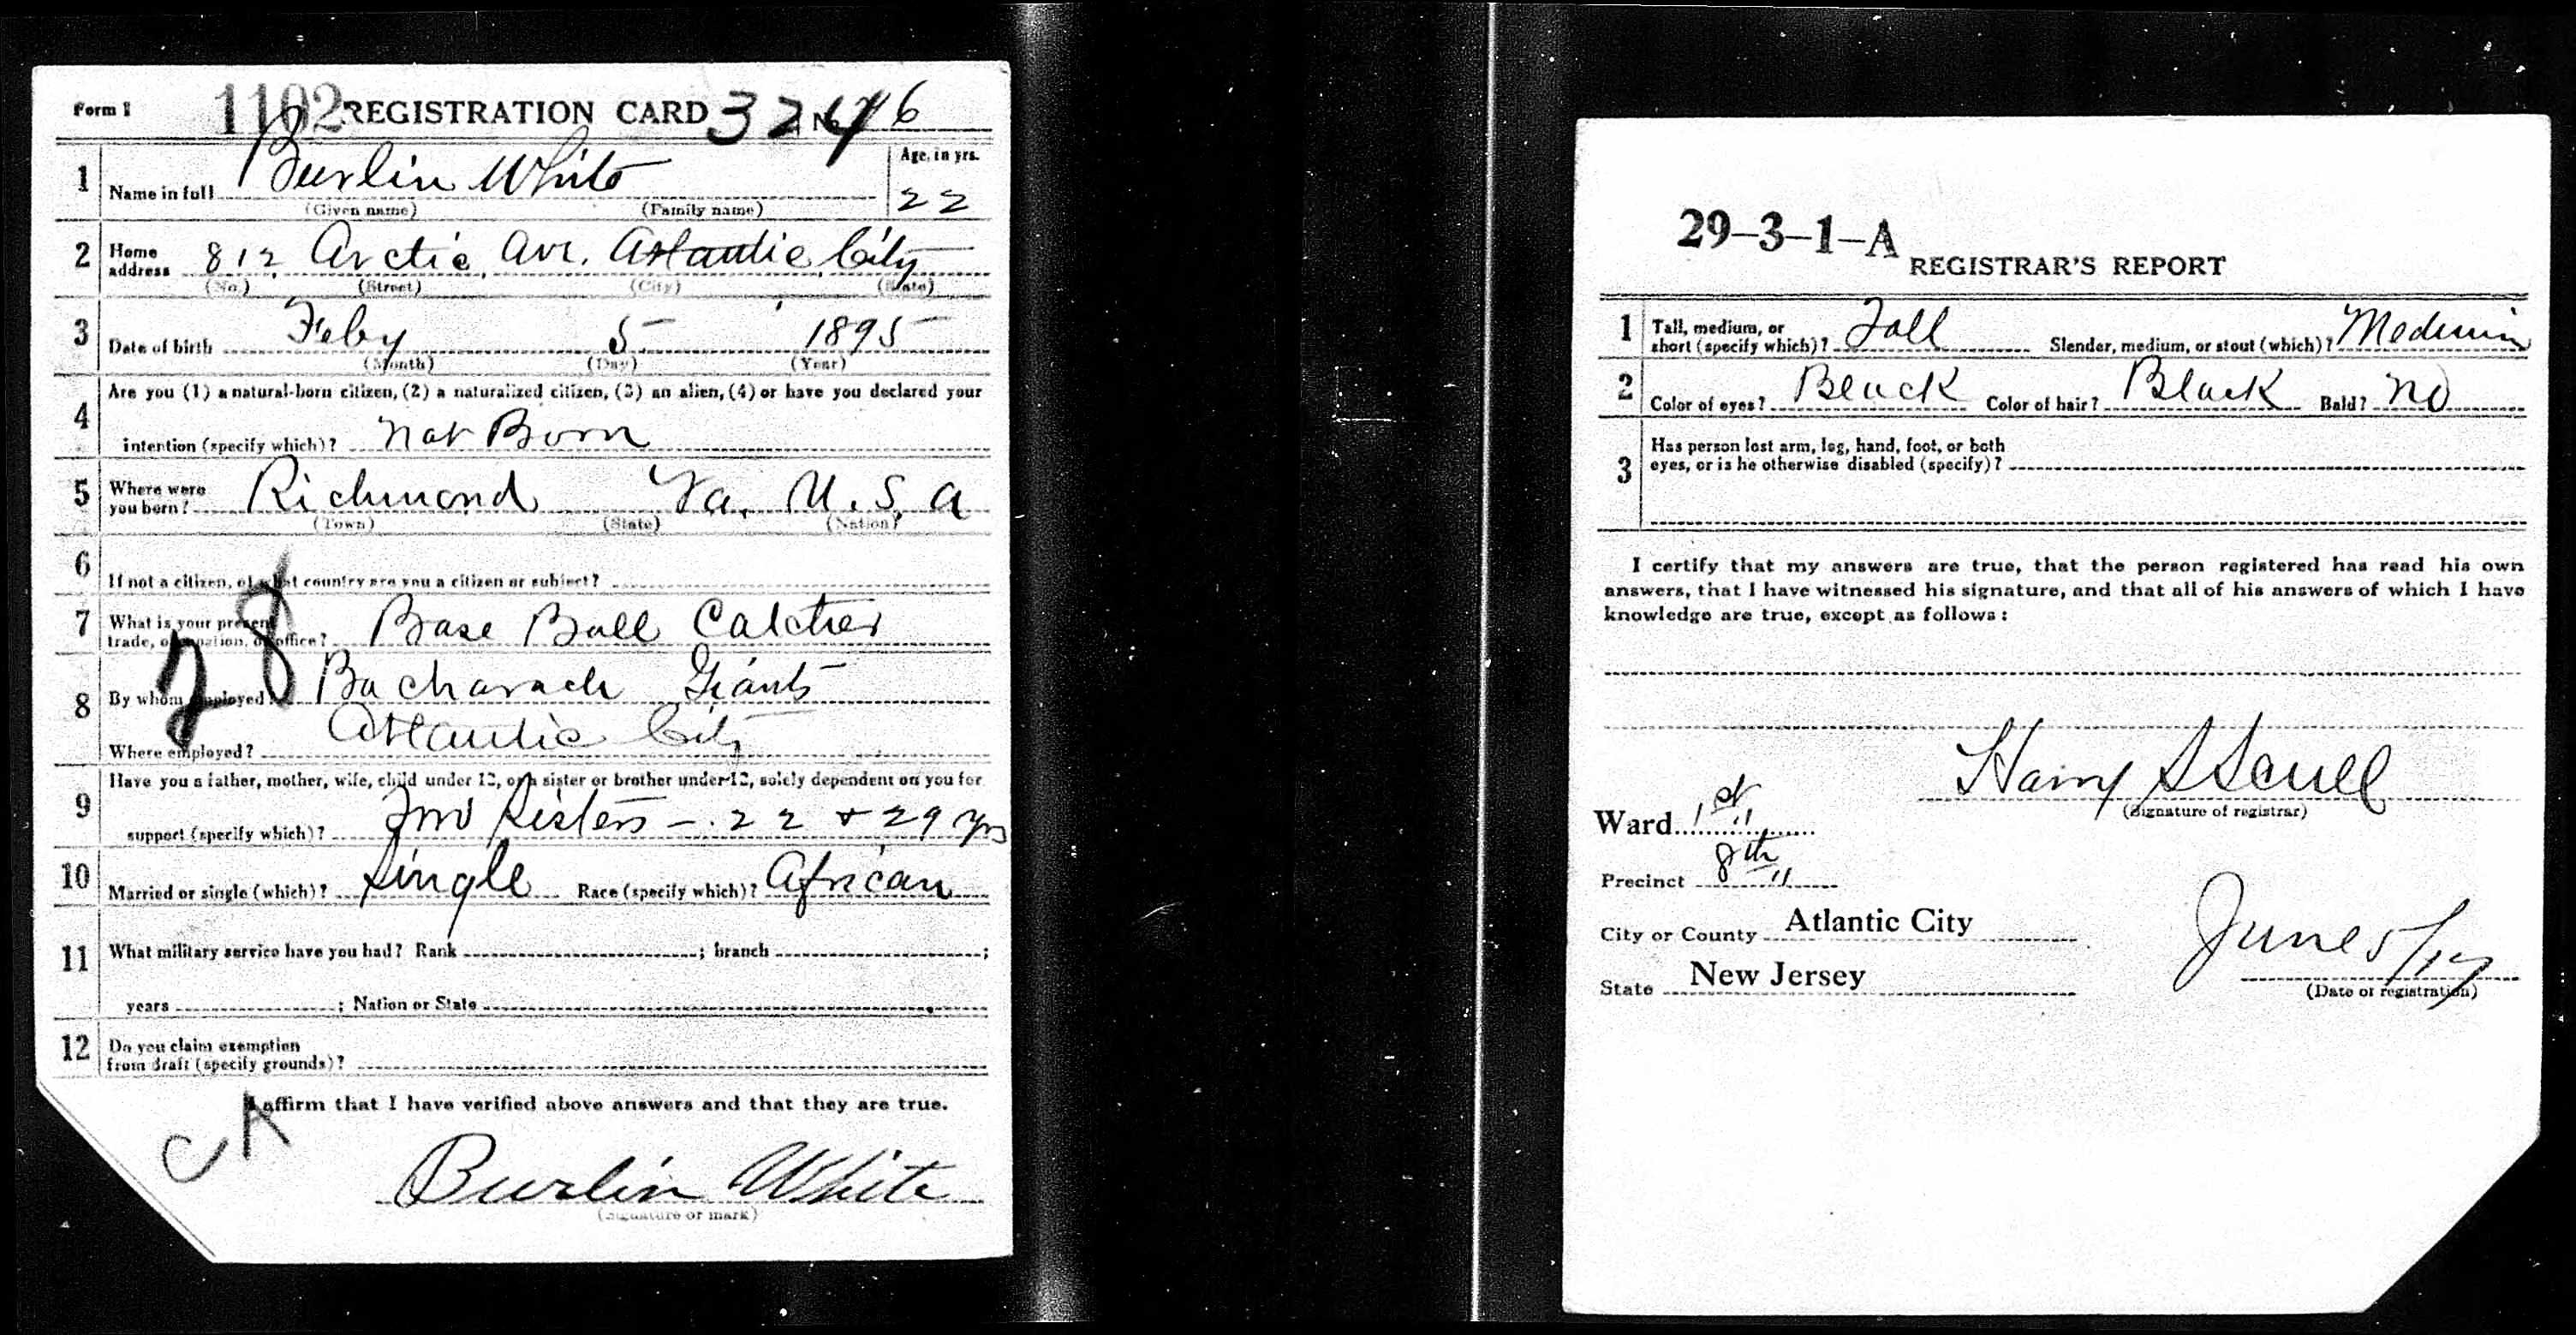 Form 1 1102 REGISTRATION CARD 324 No. 76
1 Name in full Burlin White Age, in yrs. 22
(Given name) (Family name)
2 Home address 812 Arctic Ave. Atlantic City
(No.) (Street) (City) (State)
3 Date of birth Feby 5 1895
(Month) (Day) (Year)
4 Are you (1) a natural-born citizen, (2) a naturalized citizen, (3) an alien, (4) or have you declared your
intention (specify which)? Nat Born
5 Where were you born? Richmond Va. U.S.A
(Town) (State) (Nation)
6 If not a citizen, of what country are you a citizen or subject?
7 What is your present trade, occupation, or office? Base Ball Catcher
28
8 By whom employed? Bacharach Giants
Where employed? Atlantic City
9 Have you a father, mother, wife, child under 12, or a sister or brother under 12, solely dependent on you for
support (specify which)? Two Sisters - 22 + 29 yrs
10 Married or single (which)? Single Race (specify which)? African
11 What military service have you had? Rank ; branch ;
years ; Nation or State
12 Do you claim exemption
from draft (specify grounds)?
I affirm that I have verified above answers and that they are true.
Burlin White
(Signature or mark)
29-3-1-A
REGISTRAR'S REPORT
1 Tall, medium, or short (specify which)? Tall Slender, medium, or stout (which)? Medium
2 Color of eyes? Black Color of hair? Black Bald? No
3 Has person lost arm, leg, hand, foot, or both
eyes, or is he otherwise disabled (specify)?
I certify that my answers are true, that the person registered has read his own
answers, that I have witnessed his signature, and that all of his answers of which I have
knowledge are true, except as follows:
Harry S Scull
(Signature of registrar)
Ward 1st
Precinct 8th
City or County Atlantic City
State New Jersey
June 5/17
(Date of registration)